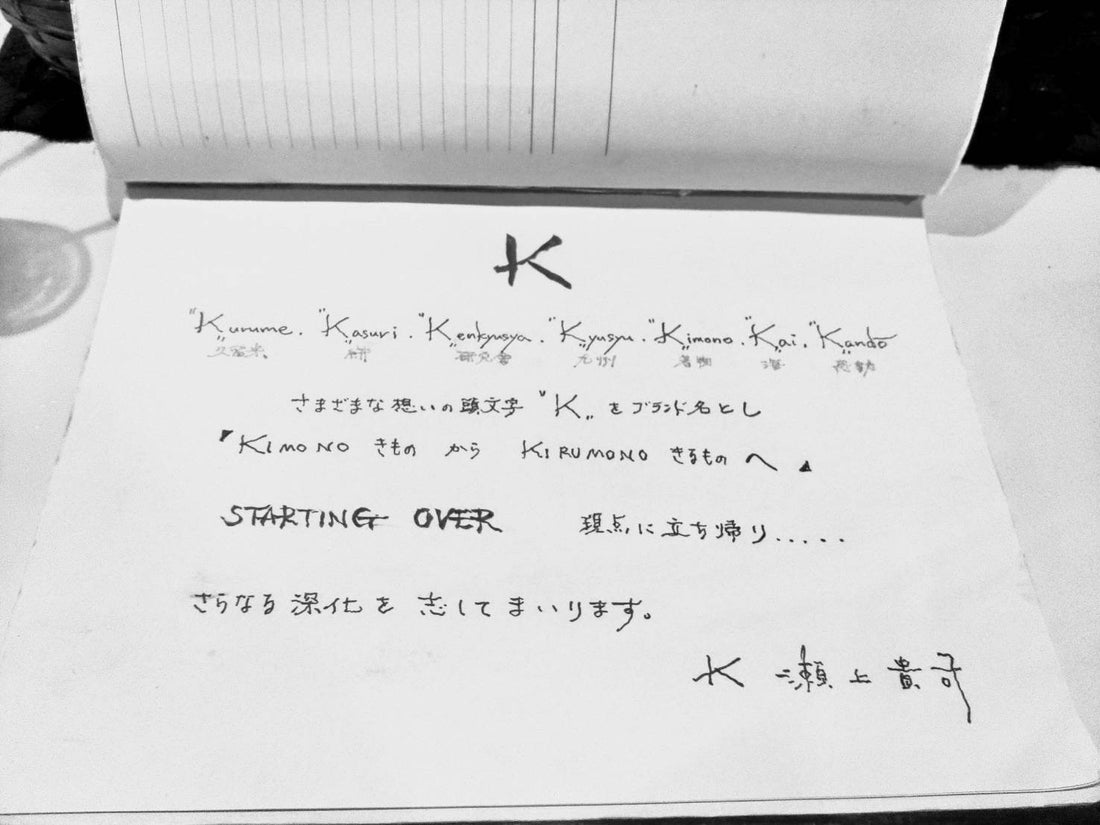 K
"Kurume. "Kasuri. "Kenkyusya. "Kyusyu. "Kimono. "Kai. "Kando
久留米 絣 研究会 九州 着物 海 感動
さまざまな想いの頭文字 "K„ をブランド名とし
『KIMONO きもの から KIRUMONO きるもの へ』
STARTING OVER 現点に立ち帰り.....
さらなる深化を志してまいります。
K 瀬上貴司